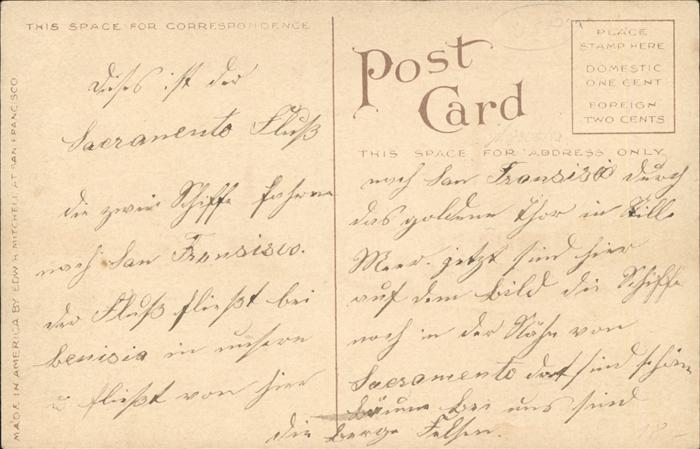 THIS SPACE FOR CORRESPONDENCE
Dises ist der
Sacramento Fluß
die zwei Schiffe fahren
nach San Fransisco.
der Fluß fließt bei
benisia in unsern
fließt von hier
Post
Card
PLACE
STAMP HERE
DOMESTIC
ONE CENT
FOREIGN
TWO CENTS
THIS SPACE FOR ADDRESS ONLY
nach San Fransisco durch
das goldene Thor in Still.
Meer. jetzt sind hier
auf dem bild die Schiffe
noch in der Nähe von
Sacramento dort sind schöne
bäume bei uns sind
die berge Felsen.
MADE IN AMERICA BY EDW. H. MITCHELL AT SAN FRANCISCO